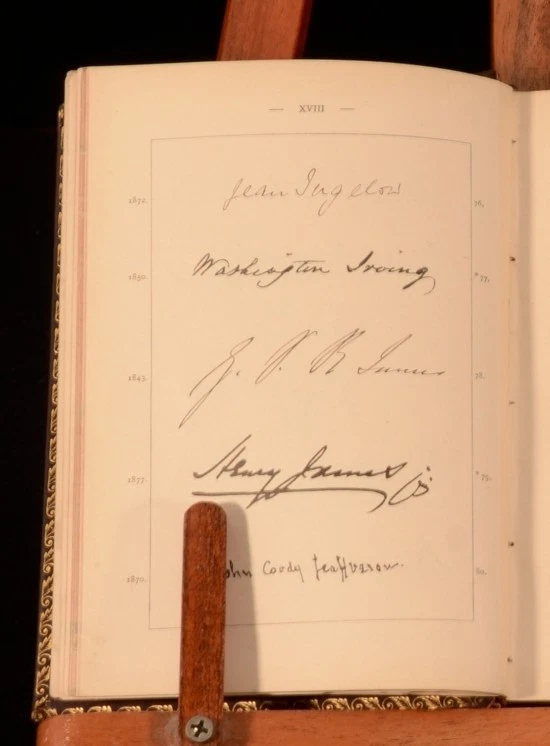 — XVIII —
1872. Jean Ingelow 76.
1850. Washington Irving *77.
1843. G. P. R James 78.
1877. Henry James Jr. *79.
1870. John Cordy Jeaffreson. 80.